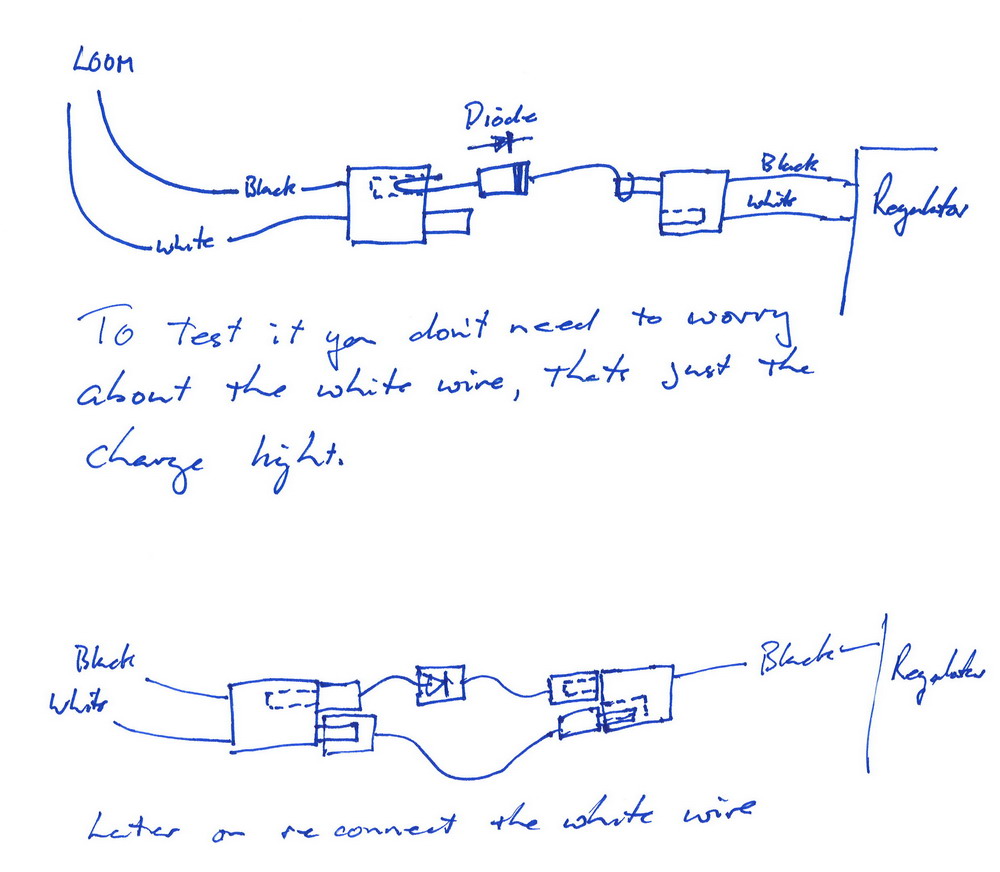 LOOM
Diode
Black
White
Black
White
Regulator
To test it you don't need to worry
about the white wire, thats just the
charge light.
Black
White
Black
Regulator
Later on re connect the white wire